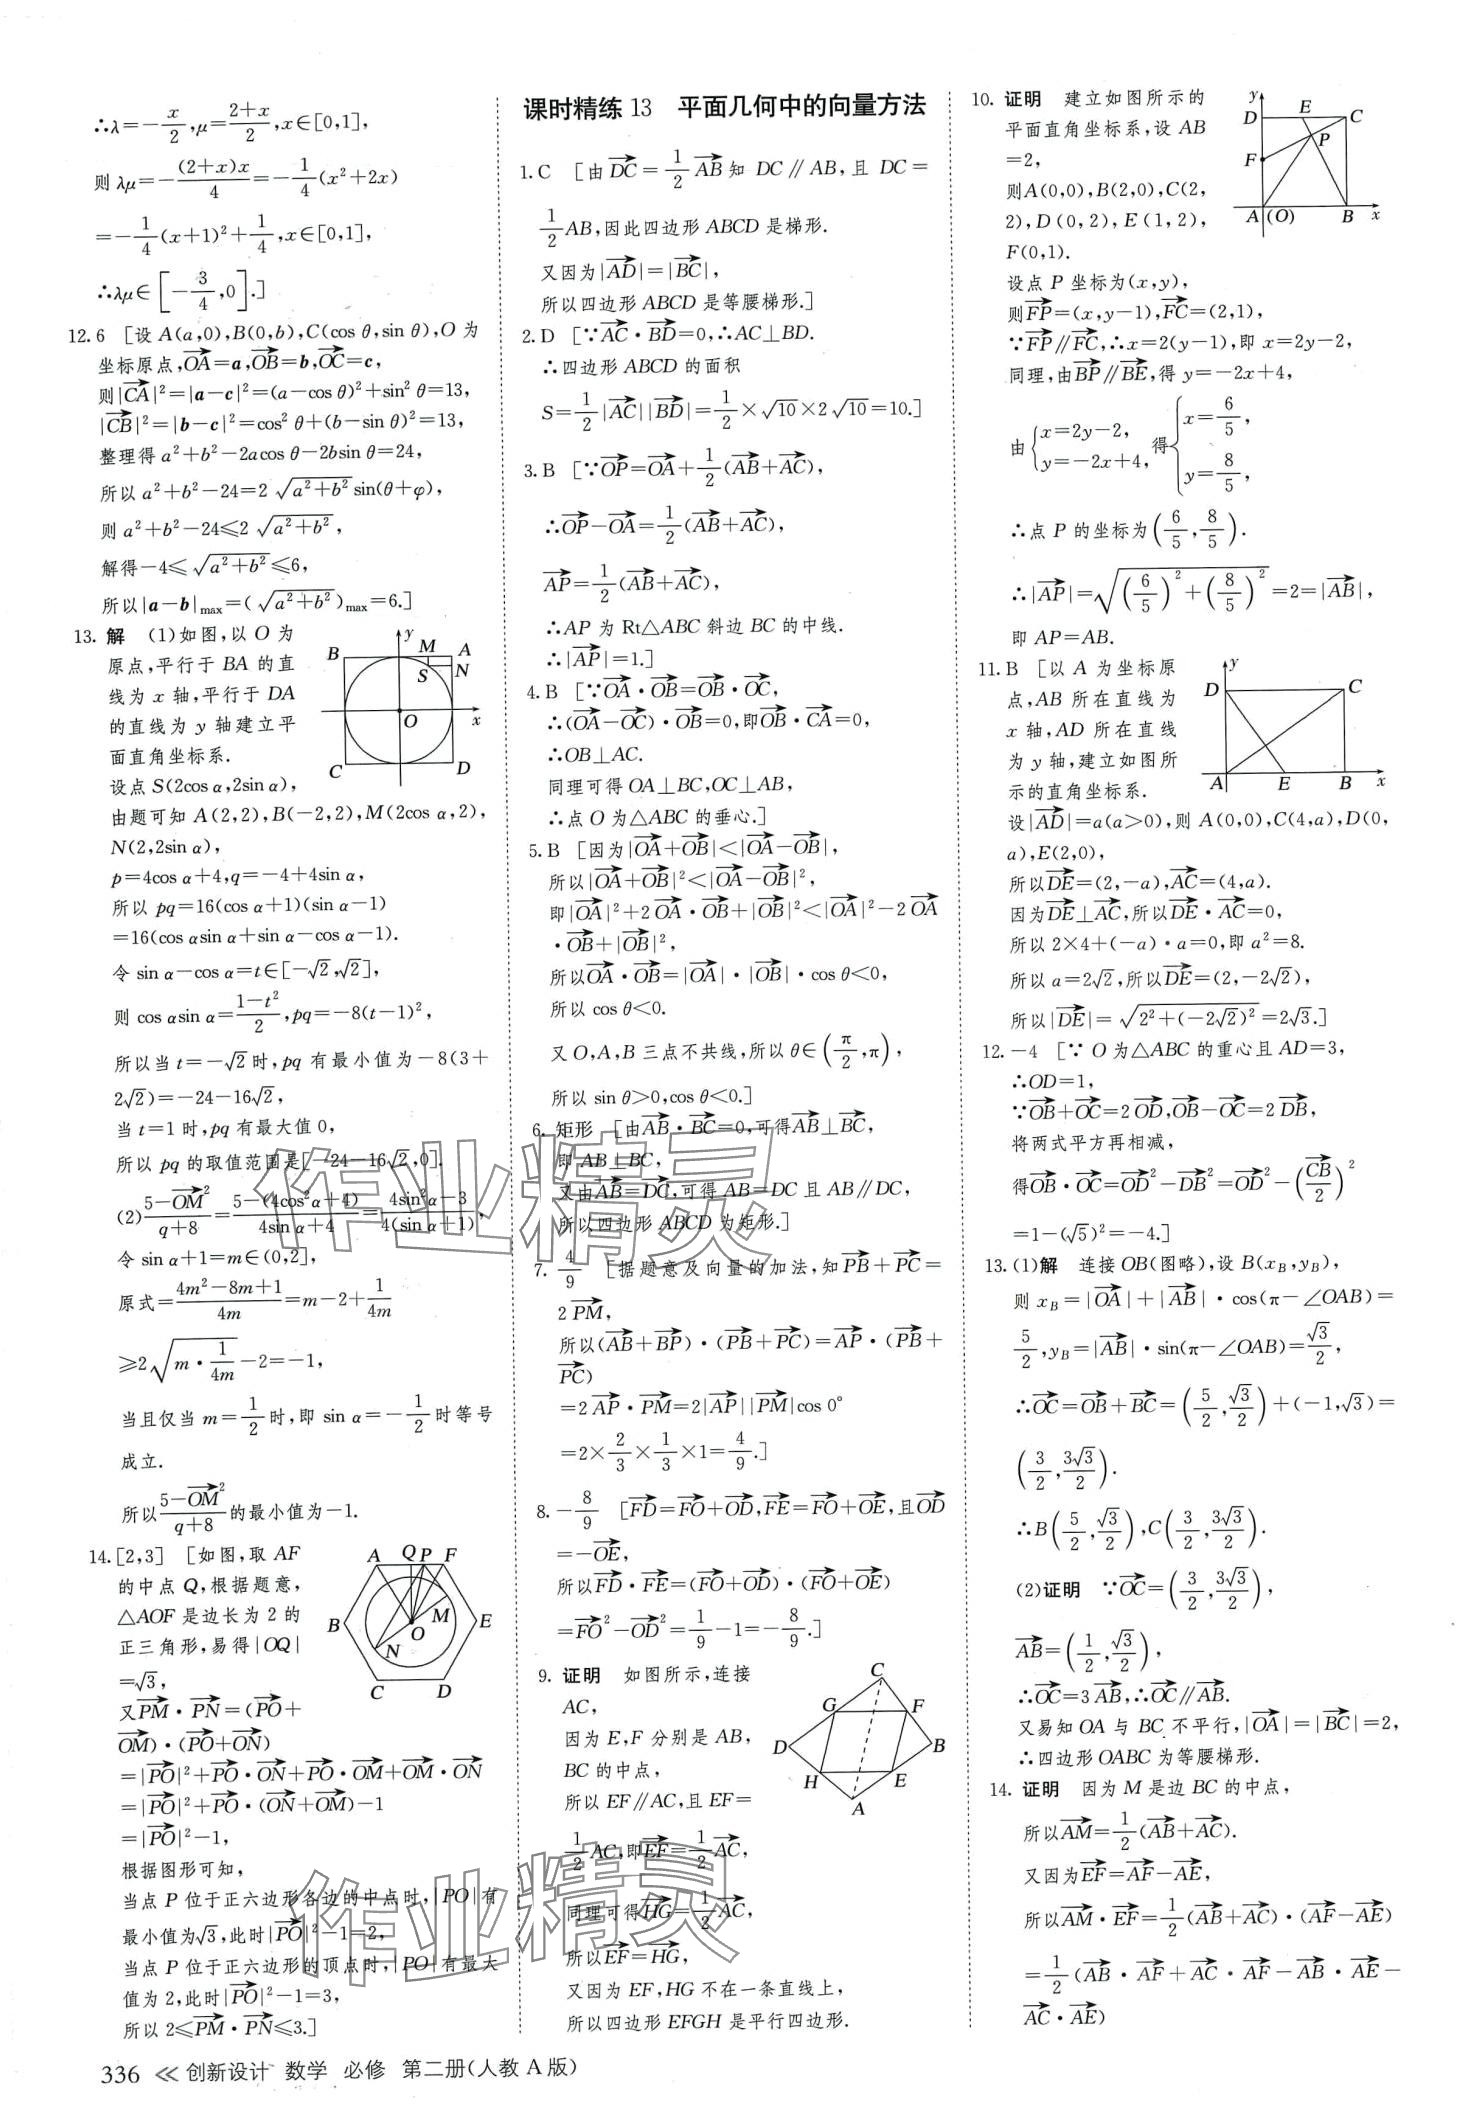 ∴λ=−x/2,μ=(2+x)/2,x∈[0,1],
则 λμ=−(2+x)x/4=−1/4(x²+2x)
=−1/4(x+1)²+1/4,x∈[0,1],
∴λμ∈[−3/4,0].]
12.6 [设 A(a,0),B(0,b),C(cos θ,sin θ),O 为
坐标原点,OA→=a,OB→=b,OC→=c,
则|CA→|²=|a−c|²=(a−cos θ)²+sin² θ=13,
|CB→|²=|b−c|²=cos² θ+(b−sin θ)²=13,
整理得 a²+b²−2acos θ−2bsin θ=24,
所以 a²+b²−24=2√(a²+b²)sin(θ+φ),
则 a²+b²−24≤2√(a²+b²),
解得−4≤√(a²+b²)≤6,
所以|a−b|max=(√(a²+b²))max=6.]
13. 解 (1)如图,以 O 为
原点,平行于 BA 的直
线为 x 轴,平行于 DA
的直线为 y 轴建立平
面直角坐标系.
设点 S(2cos α,2sin α),
B M y A S N O x C D
由题可知 A(2,2),B(−2,2),M(2cos α,2),
N(2,2sin α),
p=4cos α+4,q=−4+4sin α,
所以 pq=16(cos α+1)(sin α−1)
=16(cos αsin α+sin α−cos α−1).
令 sin α−cos α=t∈[−√2,√2],
则 cos αsin α=(1−t²)/2,pq=−8(t−1)²,
所以当 t=−√2时,pq 有最小值为−8(3+
2√2)=−24−16√2,
当 t=1 时,pq 有最大值 0,
所以 pq 的取值范围是[−24−16√2,0].
(2)(5−OM→²)/(q+8)=(5−(4cos²α+4))/(4sin α+4)=(4sin²α−3)/(4(sin α+1)),
令 sin α+1=m∈(0,2],
原式=(4m²−8m+1)/4m=m−2+1/4m
≥2√(m·1/4m)−2=−1,
当且仅当 m=1/2时,即 sin α=−1/2时等号
成立.
所以(5−OM→²)/(q+8)的最小值为−1.
14.[2,3] [如图,取 AF
的中点 Q,根据题意,
△AOF 是边长为 2 的
正三角形,易得|OQ|
=√3,
A Q P F B M E N O C D
又PM→·PN→=(PO→+
OM→)·(PO→+ON→)
=|PO→|²+PO→·ON→+PO→·OM→+OM→·ON→
=|PO→|²+PO→·(ON→+OM→)−1
=|PO→|²−1,
根据图形可知,
当点 P 位于正六边形各边的中点时,|PO|有
最小值为√3,此时|PO→|²−1=2,
当点 P 位于正六边形的顶点时,|PO|有最大
值为 2,此时|PO→|²−1=3,
所以 2≤PM→·PN→≤3.]
课时精练 13 平面几何中的向量方法
1.C [由DC→=1/2AB→知 DC∥AB,且 DC=
1/2AB,因此四边形 ABCD 是梯形.
又因为|AD→|=|BC→|,
所以四边形 ABCD 是等腰梯形.]
2.D [∵AC→·BD→=0,∴AC⊥BD.
∴四边形 ABCD 的面积
S=1/2|AC→||BD→|=1/2×√10×2√10=10.]
3.B [∵OP→=OA→+1/2(AB→+AC→),
∴OP→−OA→=1/2(AB→+AC→),
AP→=1/2(AB→+AC→),
∴AP 为 Rt△ABC 斜边 BC 的中线.
∴|AP→|=1.]
4.B [∵OA→·OB→=OB→·OC→,
∴(OA→−OC→)·OB→=0,即OB→·CA→=0,
∴OB⊥AC.
同理可得 OA⊥BC,OC⊥AB,
∴点 O 为△ABC 的垂心.]
5.B [因为|OA→+OB→|<|OA→−OB→|,
所以|OA→+OB→|²<|OA→−OB→|²,
即|OA→|²+2OA→·OB→+|OB→|²<|OA→|²−2OA→
·OB→+|OB→|²,
所以OA→·OB→=|OA→|·|OB→|·cos θ<0,
所以 cos θ<0.
又 O,A,B 三点不共线,所以 θ∈(π/2,π),
所以 sin θ>0,cos θ<0.]
6. 矩形 [由AB→·BC→=0,可得AB→⊥BC→,
即 AB⊥BC,
又由AB→=DC→,可得 AB=DC 且 AB∥DC,
所以四边形 ABCD 为矩形.]
7. 4/9 [据题意及向量的加法,知PB→+PC→=
2PM→,
所以(AB→+BP→)·(PB→+PC→)=AP→·(PB→+
PC→)
=2AP→·PM→=2|AP→||PM→|cos 0°
=2×2/3×1/3×1=4/9.]
8.−8/9 [FD→=FO→+OD→,FE→=FO→+OE→,且OD→
=−OE→,
所以FD→·FE→=(FO→+OD→)·(FO→+OE→)
=FO→²−OD→²=1/9−1=−8/9.]
9. 证明 如图所示,连接
AC,
因为 E,F 分别是 AB,
BC 的中点,
所以 EF∥AC,且 EF=
C G F D B H E A
1/2AC,即EF→=1/2AC→,
同理可得HG→=1/2AC→,
所以EF→=HG→,
又因为 EF,HG 不在一条直线上,
所以四边形 EFGH 是平行四边形.
10. 证明 建立如图所示的
平面直角坐标系,设 AB
=2,
则A(0,0),B(2,0),C(2,
2),D(0,2),E(1,2),
F(0,1).
y D E C P F A (O) B x
设点 P 坐标为(x,y),
则FP→=(x,y−1),FC→=(2,1),
∵FP→∥FC→,∴x=2(y−1),即 x=2y−2,
同理,由BP→∥BE→,得 y=−2x+4,
由{x=2y−2, y=−2x+4,得{x=6/5, y=8/5,
∴点 P 的坐标为(6/5,8/5).
∴|AP→|=√((6/5)²+(8/5)²)=2=|AB→|,
即 AP=AB.
11.B [以 A 为坐标原
点,AB 所在直线为
x 轴,AD 所在直线
为 y 轴,建立如图所
示的直角坐标系.
y D C A E B x
设|AD→|=a(a>0),则 A(0,0),C(4,a),D(0,
a),E(2,0),
所以DE→=(2,−a),AC→=(4,a).
因为DE→⊥AC→,所以DE→·AC→=0,
所以 2×4+(−a)·a=0,即 a²=8.
所以 a=2√2,所以DE→=(2,−2√2),
所以|DE→|=√(2²+(−2√2)²)=2√3.]
12.−4 [∵ O 为△ABC 的重心且 AD=3,
∴OD=1,
∵OB→+OC→=2OD→,OB→−OC→=2DB→,
将两式平方再相减,
得OB→·OC→=OD→²−DB→²=OD→²−(CB→/2)²
=1−(√5)²=−4.]
13.(1)解 连接 OB(图略),设 B(xB,yB),
则 xB=|OA→|+|AB→|·cos(π−∠OAB)=
5/2,yB=|AB→|·sin(π−∠OAB)=√3/2,
∴OC→=OB→+BC→=(5/2,√3/2)+(−1,√3)=
(3/2,3√3/2).
∴B(5/2,√3/2),C(3/2,3√3/2).
(2)证明 ∵OC→=(3/2,3√3/2),
AB→=(1/2,√3/2),
∴OC→=3AB→,∴OC→∥AB→.
又易知 OA 与 BC 不平行,|OA→|=|BC→|=2,
∴四边形 OABC 为等腰梯形.
14. 证明 因为 M 是边 BC 的中点,
所以AM→=1/2(AB→+AC→).
又因为EF→=AF→−AE→,
所以AM→·EF→=1/2(AB→+AC→)·(AF→−AE→)
=1/2(AB→·AF→+AC→·AF→−AB→·AE→−
AC→·AE→)
作业精灵
作业精灵
336 ≪ 创新设计 数学 必修 第二册(人教 A 版)